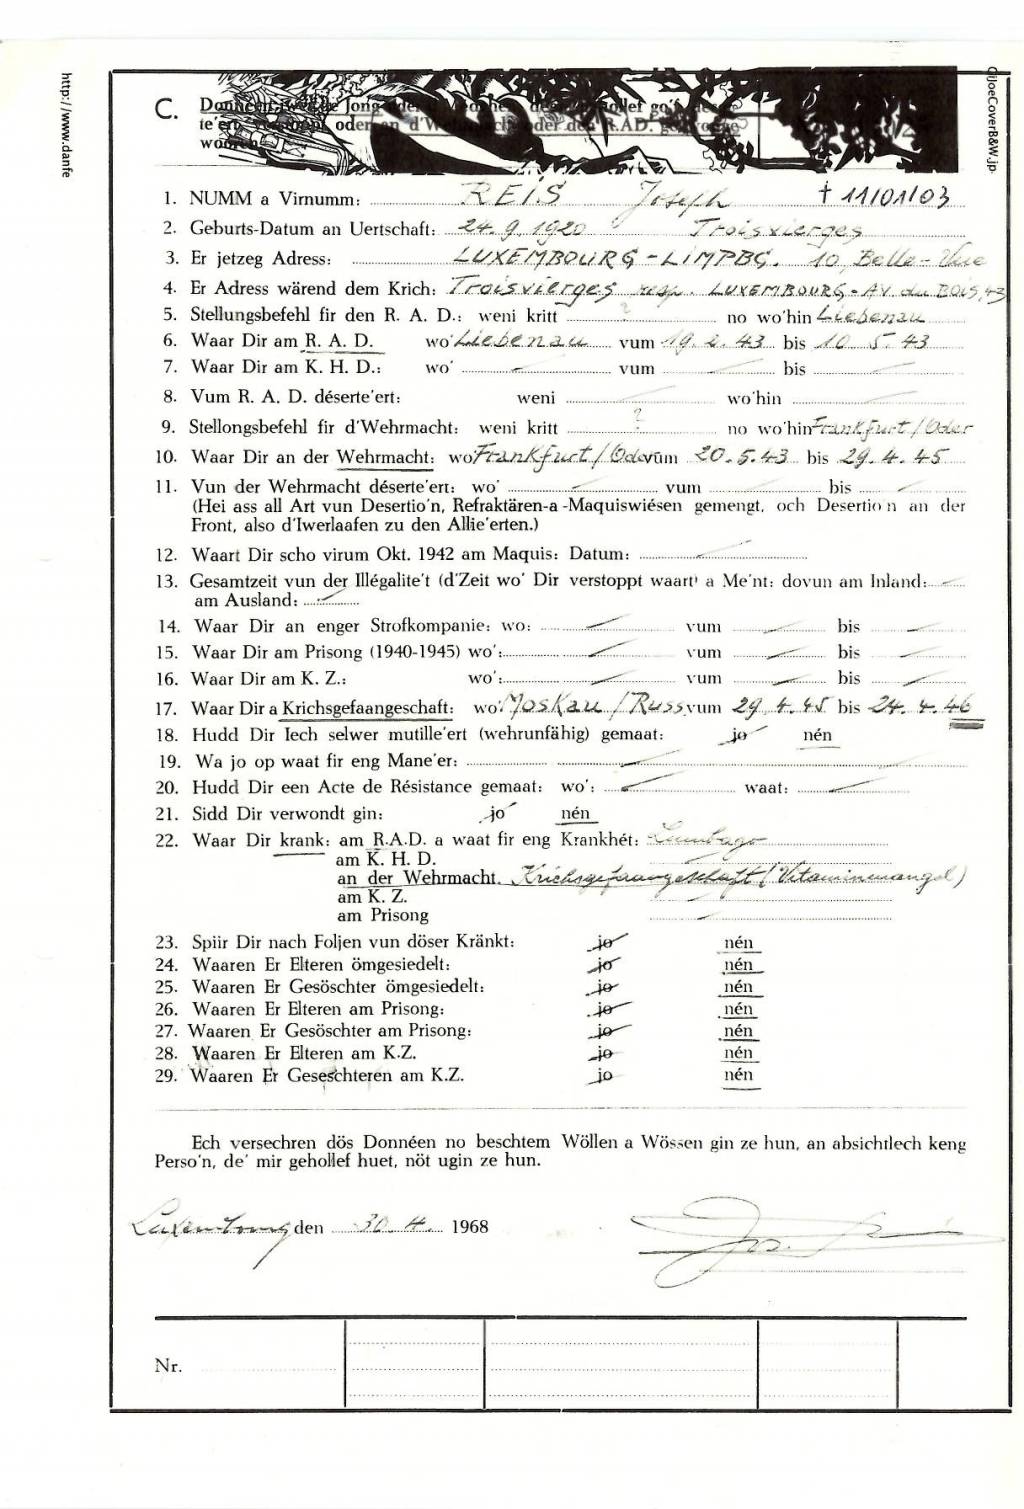 http://www.danfe
GIJoeCoverB&W.jp
C.
wooren
1. NUMM a Virnumm: REIS Joseph † 11/01/03
2. Geburts-Datum an Uertschaft: 24. 9. 1920 Troisvierges
3. Er jetzeg Adress: LUXEMBOURG - LIMPBG. 10, Belle-Vue
4. Er Adress wärend dem Krich: Troisvierges resp. LUXEMBOURG - AV. du BOIS, 43
5. Stellungsbefehl fir den R. A. D.: weni kritt ? no wo'hin Liebenau
6. Waar Dir am R. A. D. wo' Liebenau vum 19. 2. 43 bis 10 5. 43
7. Waar Dir am K. H. D.: wo' vum bis
8. Vum R. A. D. déserte'ert: weni wo'hin
9. Stellongsbefehl fir d'Wehrmacht: weni kritt ? no wo'hin Frankfurt/Oder
10. Waar Dir an der Wehrmacht: wo' Frankfurt/Oder vum 20. 5. 43 bis 29. 4. 45
11. Vun der Wehrmacht déserte'ert: wo' vum bis
(Hei ass all Art vun Desertio'n, Refraktären-a-Maquiswiésen gemengt, och Desertio'n an der
Front, also d'Iwerlaafen zu den Allie'erten.)
12. Waart Dir scho virum Okt. 1942 am Maquis: Datum:
13. Gesamtzeit vun der Illégalite't (d'Zeit wo' Dir verstoppt waart) a Me'nt: dovun am Inland:
am Ausland:
14. Waar Dir an enger Strofkompanie: wo: vum bis
15. Waar Dir am Prisong (1940-1945) wo': vum bis
16. Waar Dir am K. Z.: wo': vum bis
17. Waar Dir a Krichsgefaangeschaft: wo: Moskau/Russ. vum 29. 4. 45 bis 24. 4. 46
18. Hudd Dir Iech selwer mutille'ert (wehrunfähig) gemaat: jo nén
19. Wa jo op waat fir eng Mane'er:
20. Hudd Dir een Acte de Résistance gemaat: wo': waat:
21. Sidd Dir verwondt gin: jo nén
22. Waar Dir krank: am R.A.D. a waat fir eng Krankhét: Lumbago
am K. H. D.
an der Wehrmacht. Krichsgefaangeschaft (Vitaminmangel)
am K. Z.
am Prisong
23. Spiir Dir nach Foljen vun döser Kränkt: jo nén
24. Waaren Er Elteren ömgesiedelt: jo nén
25. Waaren Er Gesöschter ömgesiedelt: jo nén
26. Waaren Er Elteren am Prisong: jo nén
27. Waaren Er Gesöschter am Prisong: jo nén
28. Waaren Er Elteren am K.Z. jo nén
29. Waaren Er Geseschteren am K.Z. jo nén
Ech versechren dös Donnéen no beschtem Wöllen a Wössen gin ze hun, an absichtlech keng
Perso'n, de' mir gehollef huet, nöt ugin ze hun.
Luxembourg den 30. 4. 1968
Nr.